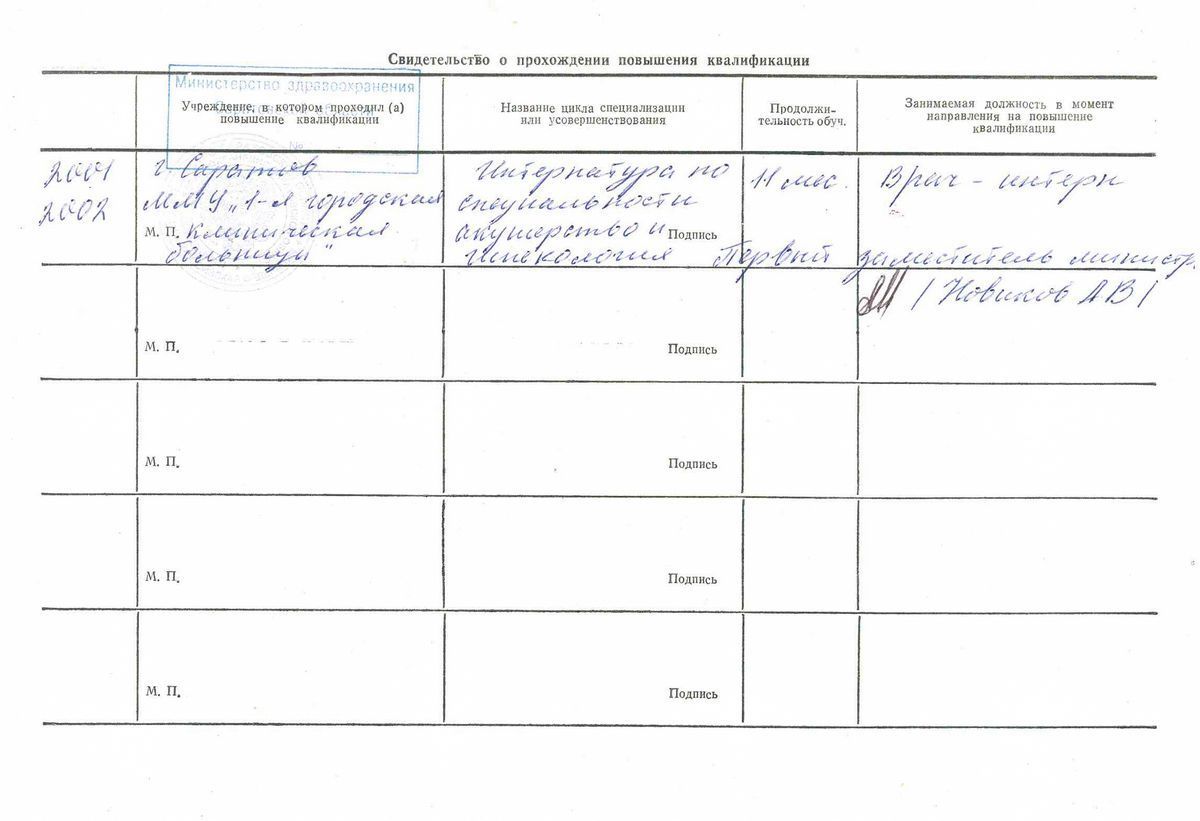 Свидетельство о прохождении повышения квалификации
Министерство здравоохранения
Учреждение, в котором проходил (а)
повышение квалификации
Название цикла специализации
или усовершенствования
Продолжи-
тельность обуч.
Занимаемая должность в момент
направления на повышение
квалификации
№
2001
2002
г. Саратов
ММУ „1-я городская
М. П. клиническая
больница"
Интернатура по
специальности
акушерство и
гинекология
Подпись
11 мес.
Врач - интерн
Первый заместитель министр.
/ Новиков АВ /
М. П. Подпись
М. П. Подпись
М. П. Подпись
М. П. Подпись